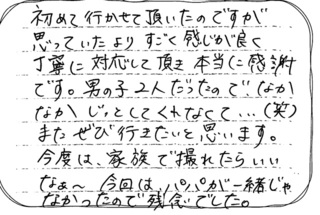 初めて行かせて頂いたのですが
思っていたより すごく感じが良く
丁寧に対応して頂き 本当に感謝
です。男の子2人だったので なか
なか じっとしてくれなくて…(笑)
また ぜひ行きたいと思います。
今度は、家族で撮れたらいい
なぁ〜 今回は、パパが一緒じゃ
なかったので残念でした。